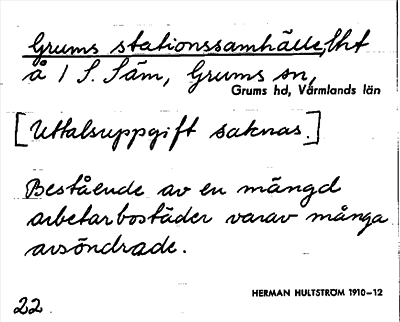 Grums stationssamhälle, lht
å 1 S. Säm, Grums sn,
Grums hd, Värmlands län
[Uttalsuppgift saknas.]
Bestående av en mängd
arbetarbostäder varav många
avsöndrade.
HERMAN HULTSTRÖM 1910–12
22.